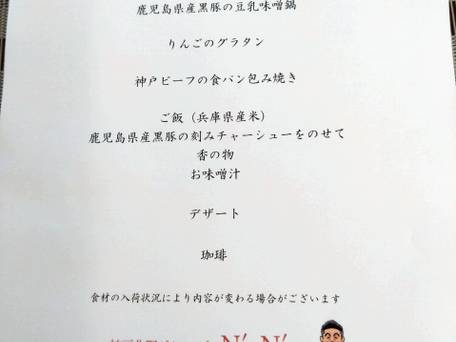 鹿児島県産黒豚の豆乳味噌鍋
りんごのグラタン
神戸ビーフの食パン包み焼き
ご飯（兵庫県産米）
鹿児島県産黒豚の刻みチャーシューをのせて
香の物
お味噌汁
デザート
珈琲
食材の入荷状況により内容が変わる場合がございます